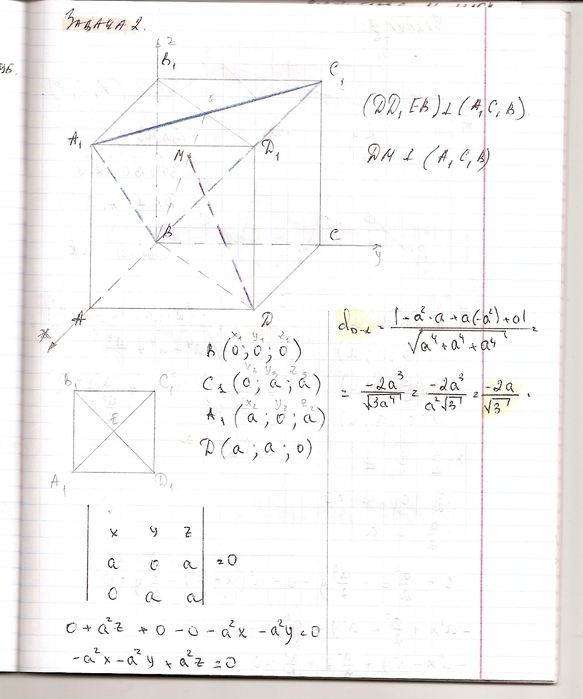 Задача 2.
z
B₁
C₁
E
A₁
D₁
M
B
C
y
A
D
x
(DD₁EB)⊥(A₁C₁B)
DM ⊥ (A₁C₁B)
x₁ y₁ z₁
B(0; 0; 0)
x₃ y₃ z₃
C₁(0; a; a)
x₂ y₂ z₂
A₁(a; 0; a)
D(a; a; 0)
B₁ C₁
E
A₁ D₁
x y z
a 0 a =0
0 a a
0 + a²z + 0 - 0 - a²x - a²y = 0
-a²x - a²y + a²z = 0
d₀₋α = |-a²·a + a(-a²) + 0| / √(a⁴+a⁴+a⁴) =
= -2a³/√(3a⁴) = -2a³/(a²√3) = -2a/√3.